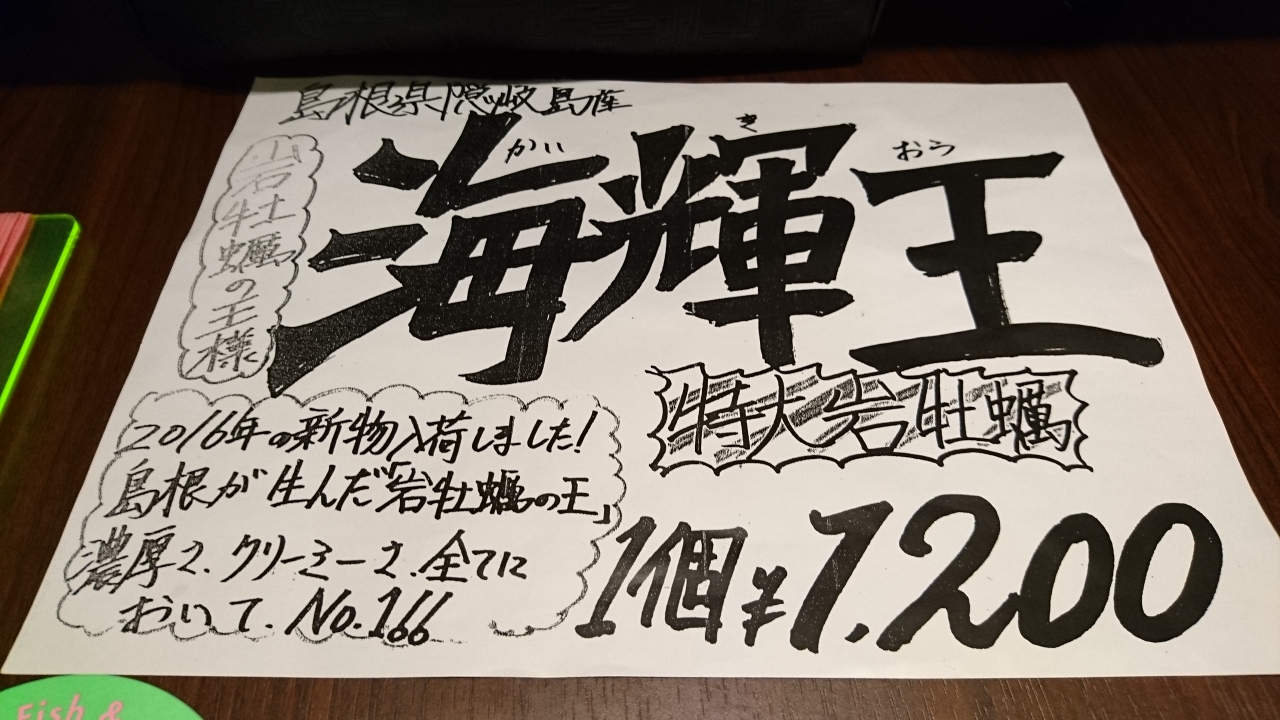 島根県隠岐島産
海輝王
かい
き
おう
岩牡蠣の王様
特大岩牡蠣
2016年の新物入荷しました!
島根が生んだ「岩牡蠣の王」
濃厚さ、クリーミーさ、全てに
おいて、No.1
1個¥1,200
Fish &